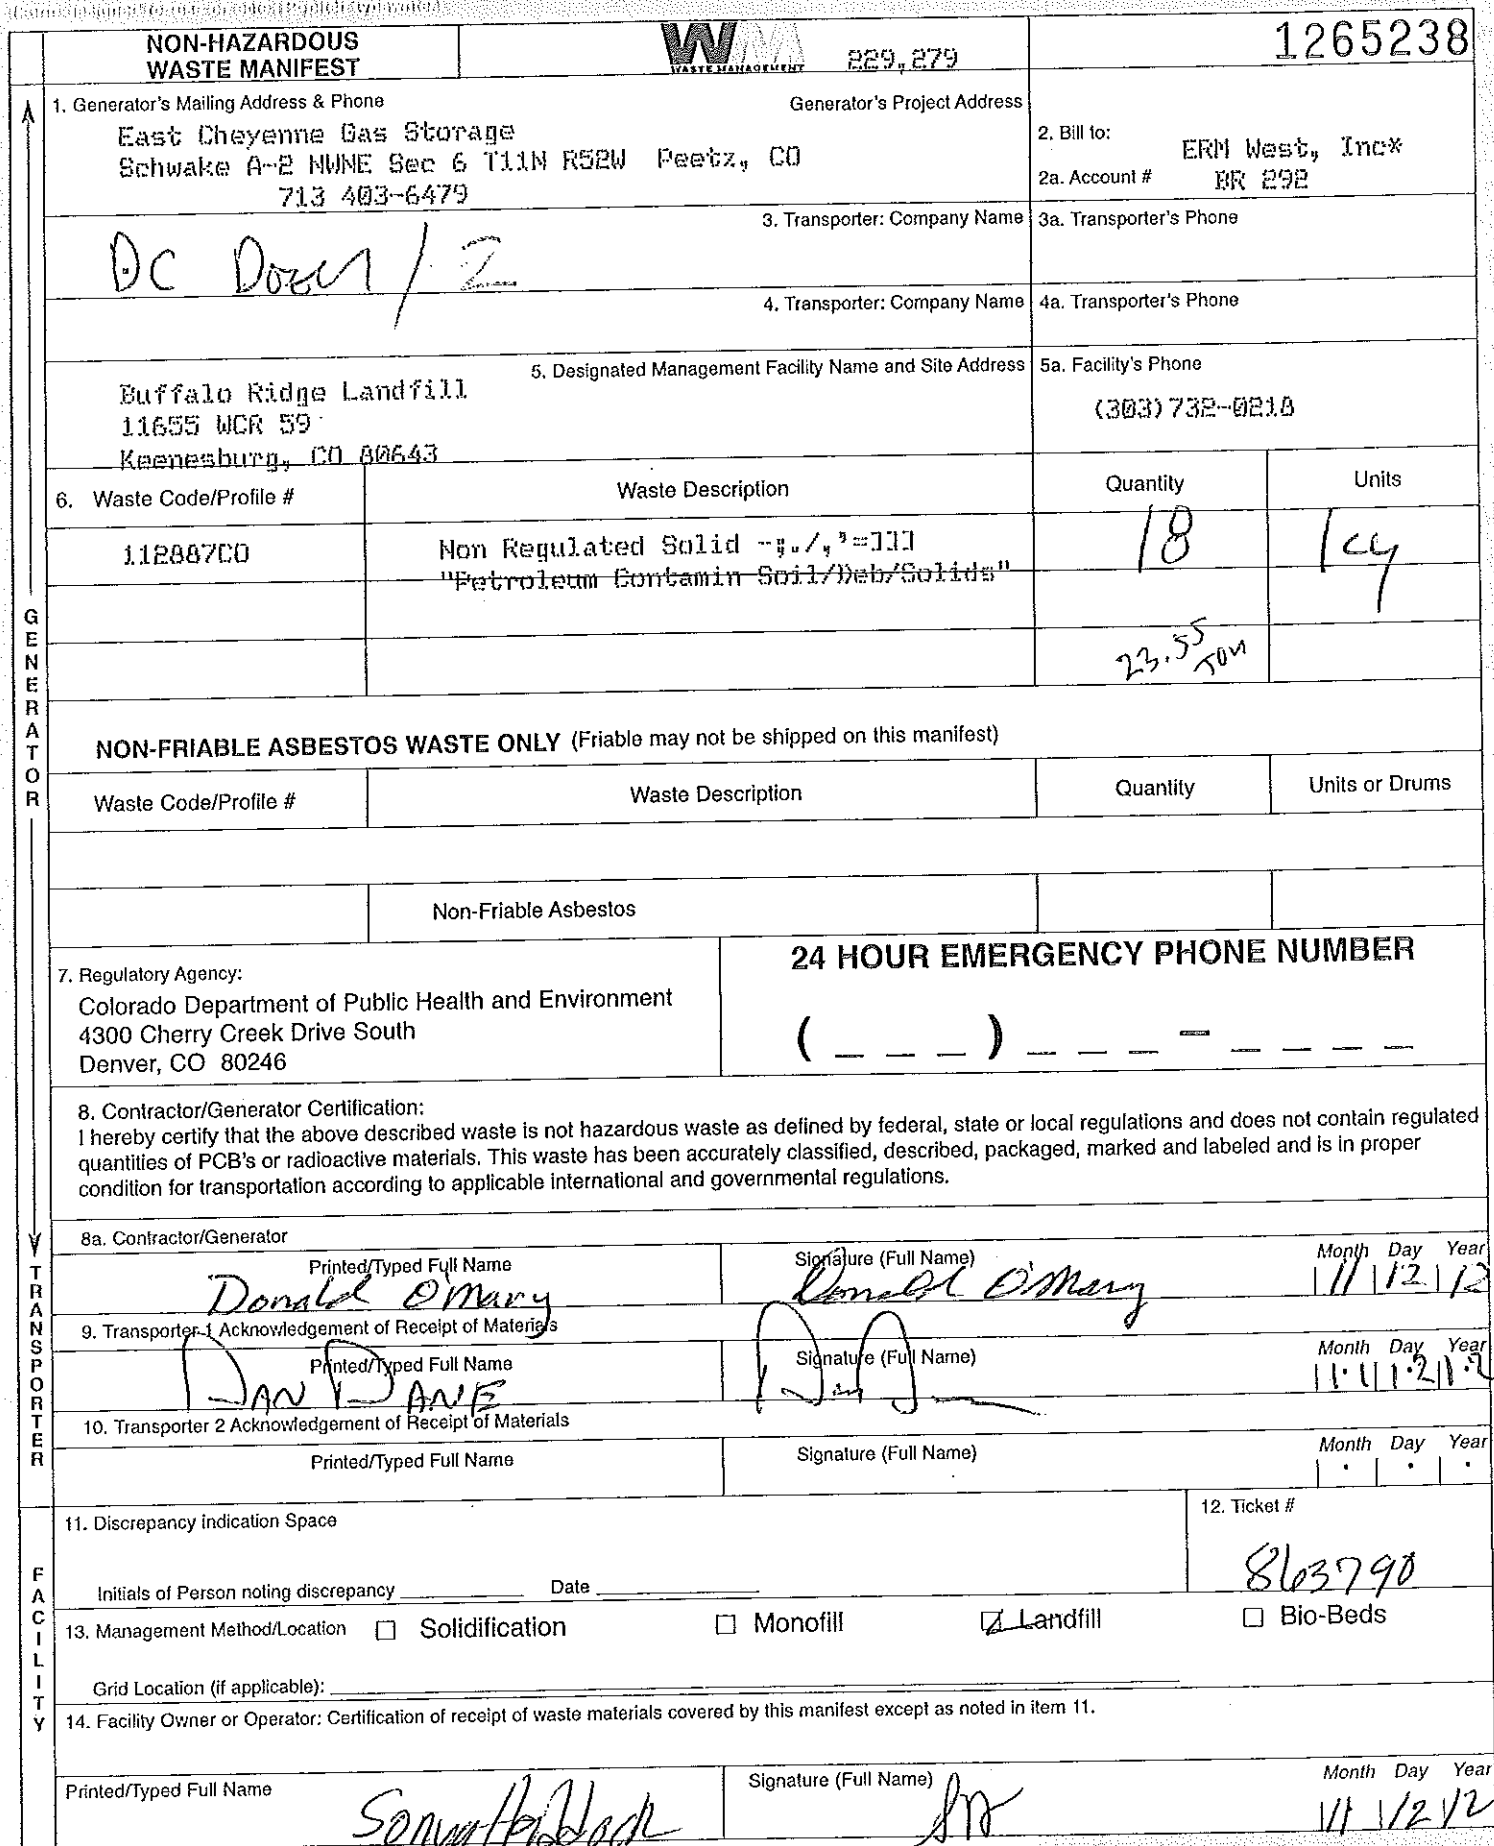 NON-HAZARDOUS
WASTE MANIFEST
WM
WASTE MANAGEMENT
229,279
1265238
1. Generator's Mailing Address & Phone
Generator's Project Address
East Cheyenne Gas Storage
Schwake A-2 NWNE Sec 6 T11N R52W Peetz, CO
713 403-6479
2. Bill to:
ERM West, Inc*
2a. Account #
BR 292
3. Transporter: Company Name
3a. Transporter's Phone
DC Dozer / 2
4. Transporter: Company Name
4a. Transporter's Phone
5. Designated Management Facility Name and Site Address
5a. Facility's Phone
Buffalo Ridge Landfill
11655 WCR 59
Keenesburg, CO 80643
(303)732-0218
6. Waste Code/Profile #
Waste Description
Quantity
Units
112887CO
Non Regulated Solid -;./,'=]]]
"Petroleum Contamin Soil/Deb/Solids"
18
cy
23.55
TON
NON-FRIABLE ASBESTOS WASTE ONLY (Friable may not be shipped on this manifest)
Waste Code/Profile #
Waste Description
Quantity
Units or Drums
Non-Friable Asbestos
7. Regulatory Agency:
Colorado Department of Public Health and Environment
4300 Cherry Creek Drive South
Denver, CO 80246
24 HOUR EMERGENCY PHONE NUMBER
( _ _ _ ) _ _ _ - _ _ _ _
8. Contractor/Generator Certification:
I hereby certify that the above described waste is not hazardous waste as defined by federal, state or local regulations and does not contain regulated
quantities of PCB's or radioactive materials. This waste has been accurately classified, described, packaged, marked and labeled and is in proper
condition for transportation according to applicable international and governmental regulations.
8a. Contractor/Generator
Printed/Typed Full Name
Signature (Full Name)
Month Day Year
Donald O'Mary
Donald O'Mary
11 12 12
9. Transporter 1 Acknowledgement of Receipt of Materials
Printed/Typed Full Name
Signature (Full Name)
Month Day Year
DAN DANE
11 12 12
10. Transporter 2 Acknowledgement of Receipt of Materials
Printed/Typed Full Name
Signature (Full Name)
Month Day Year
11. Discrepancy indication Space
12. Ticket #
863790
Initials of Person noting discrepancy
Date
13. Management Method/Location
Solidification
Monofill
Landfill
Bio-Beds
Grid Location (if applicable):
14. Facility Owner or Operator: Certification of receipt of waste materials covered by this manifest except as noted in item 11.
Printed/Typed Full Name
Signature (Full Name)
Month Day Year
11 12 12
GENERATOR
TRANSPORTER
FACILITY